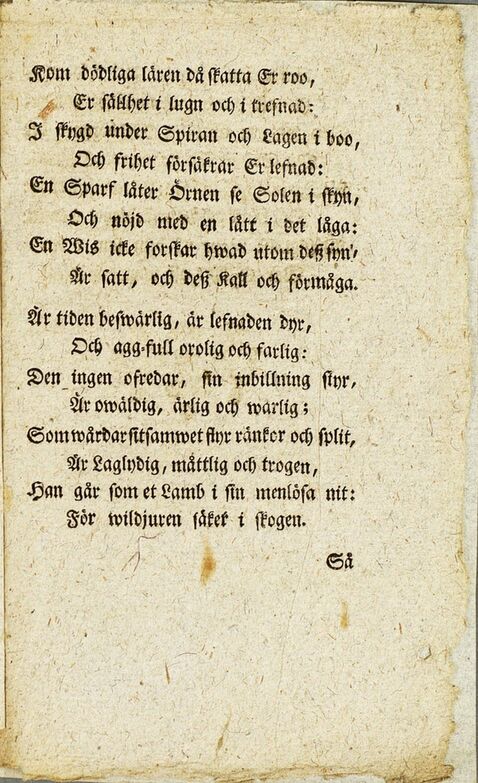 Kom dödliga lären då skatta Er roo,
Er sällhet i lugn och i trefnad:
I skygd under Spiran och Lagen i boo,
Och frihet försäkrar Er lefnad:
En Sparf låter Örnen se Solen i skyn,
Och nöjd med en lätt i det låga:
En Wis icke forskar hwad utom deß syn'
Är satt, och deß Kall och förmåga.
Är tiden beswärlig, är lefnaden dyr,
Och agg-full orolig och farlig:
Den ingen ofredar, sin inbillning styr,
Är owäldig, ärlig och warlig;
Som wårdar sit samwet flyr ränker och split,
Är Laglydig, måttlig och trogen,
Han går som et Lamb i sin menlösa nit:
För wildjuren säker i skogen.
Så